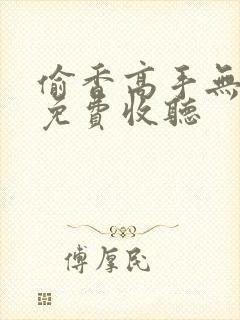 偷香高手無
免費收聽
傅厚民